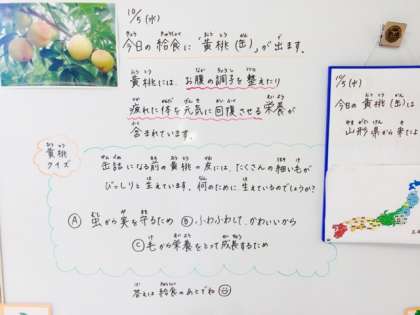 10/5(水)
今日の給食に"黄桃(缶)"が出ます。
黄桃には、お腹の調子を整えたり
疲れた体を元気に回復させる栄養が
含まれています。
黄桃
クイズ
缶詰になる前の黄桃の皮には、たくさんの細い毛が
びっしりと生えています。何のために生えているのでしょうか?
Ⓐ 虫から実を守るため Ⓑ ふわふわして、かわいいから
Ⓒ 毛から栄養をとって成長するため
答えは給食のあとでね
10/5(水)
今日の黄桃(缶)は
山形県から来たよ